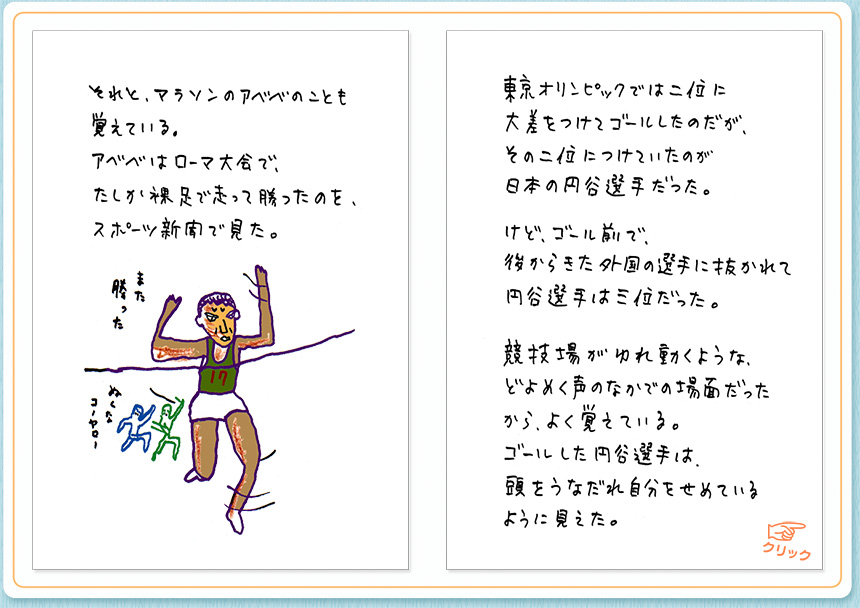 それと、マラソンのアベベのことも
覚えている。
アベベはローマ大会で、
たしか裸足で走って勝ったのを、
スポーツ新聞で見た。
また
勝った
17
ぬくな
コノヤロー
東京オリンピックでは二位に
大差をつけてゴールしたのだが、
その二位につけていたのが
日本の円谷選手だった。
けど、ゴール前で、
後からきた外国の選手に抜かれて
円谷選手は三位だった。
競技場がゆれ動くような、
どよめく声のなかでの場面だった
から、よく覚えている。
ゴールした円谷選手は、
頭をうなだれ自分をせめている
ように見えた。
クリック